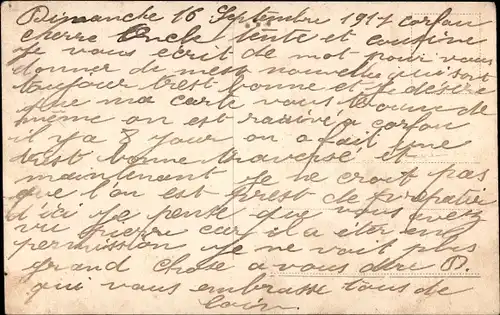 Dimanche 16 Septembre 1917 corfou
cherre Oncle tente et cousine
je vous écrit de mot pour vous
donner de mest nouvelle qui sont
toujour trest bonne et je désire
que ma carte vous trouve de
même on est rarivé a corfou
il y a 3 jour on a fait une
trest bonne traversé et
maintenant je ne croit pas
que l'on est prest de
d'ici je pense que vous avez
vu pierre car il a éter en
permission je ne voit plus
grand chose a vous dire O.
qui vous embrasse tous de
loin.